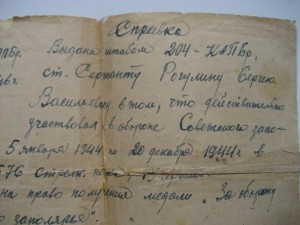 Справка
Выдана штабом 204-КАПБр,
ст. Сержанту Рогулину Сергею
Васильевичу в том, что действительно
участвовал в обороне Советского запо-
5 января 1944 - по 20 декабря 1944 в
576 стрелк.
на право получения медали „За оборону
заполярья“.